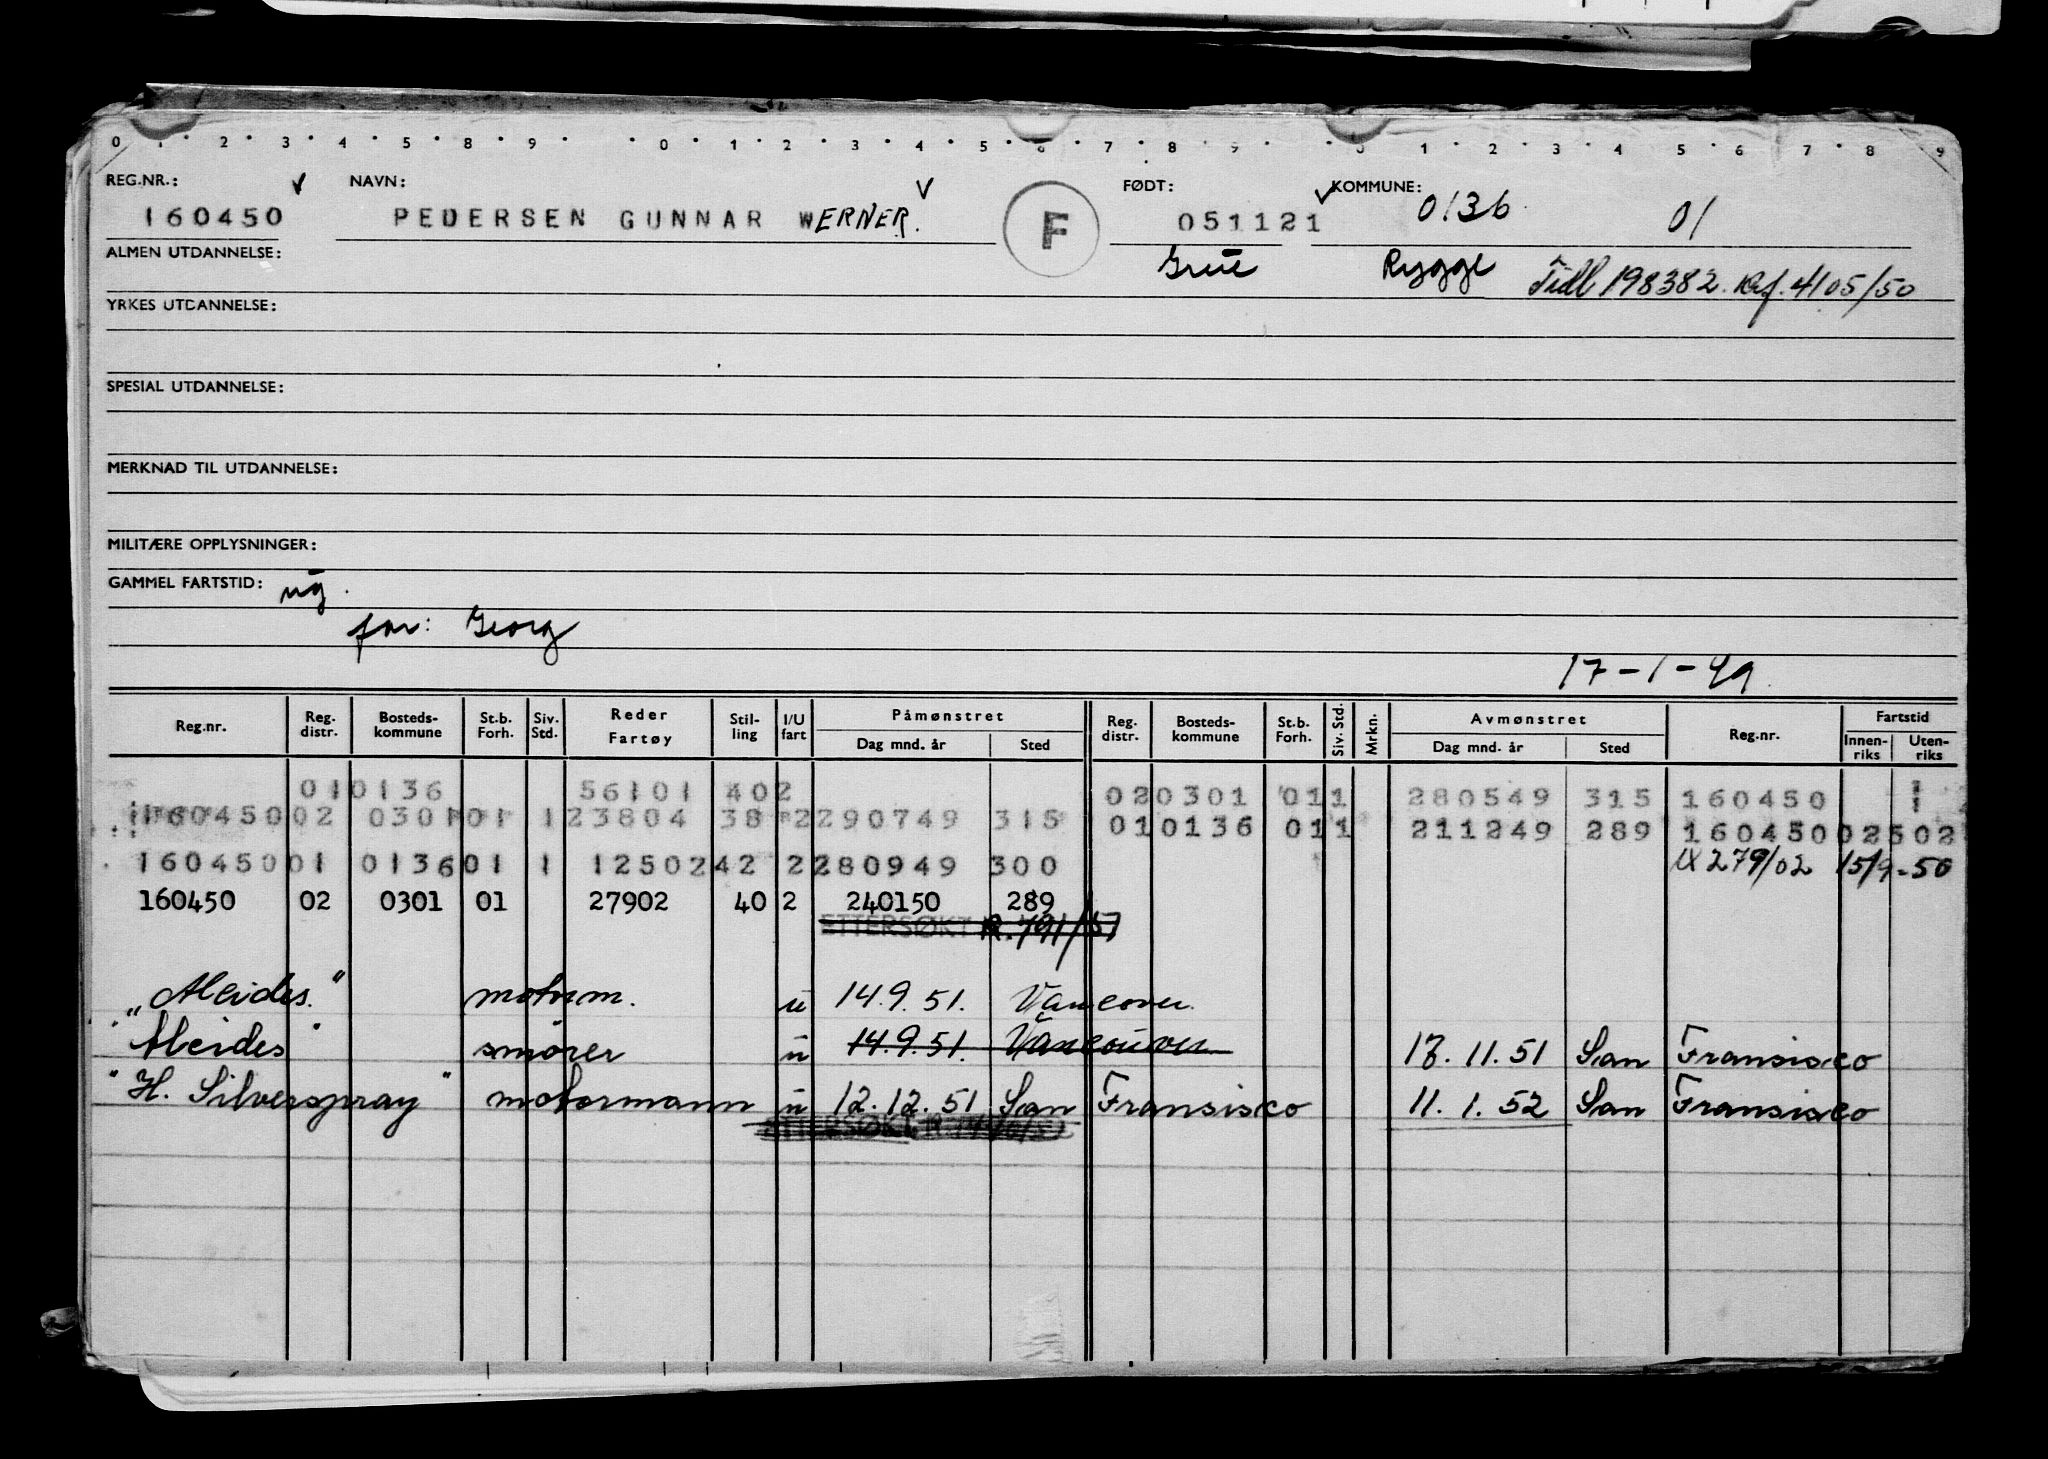 0 1 2 3 4 5 8 9 0 1 2 3 4 5 6 7 8 9 0 1 2 3 4 5 6 7 8 9
REG.NR.: NAVN: FØDT: KOMMUNE:
160450 PEDERSEN GUNNAR WERNER. F 051121 0136 01
ALMEN UTDANNELSE: Grue Rygge Tidl 198382. Ref. 4105/50
YRKES UTDANNELSE:
SPESIAL UTDANNELSE:
MERKNAD TIL UTDANNELSE:
MILITÆRE OPPLYSNINGER:
GAMMEL FARTSTID: ug.
far: Georg
17-1-49.
Reg.nr. Reg. distr. Bosteds- kommune St.b. Forh. Siv. Std. Reder Fartøy Stil- ling I/U fart Påmønstret Dag mnd. år Sted Reg. distr. Bosteds- kommune St.b. Forh. Siv. Std. Mrkn. Avmønstret Dag mnd. år Sted Reg.nr. Fartstid Innen- riks Uten- riks
010136 56101 402 020301 011 280549 315 160450
16045002 030101 123804 38 2290749 315 010136 011 211249 289 16045002502
16045001 013601 1 1250242 2280949 300 IX 279/02 15/9-50
160450 02 0301 01 27902 40 2 240150 289
ETTERSØKT R.791/51
"Aleides." motorm. u 14.9.51. Vancover.
"Aleides" smører u 14.9.51. Vancouver 13.11.51 San Fransisco
"H. Silverspray" motormann u 12.12.51 San Fransisco 11.1.52 San Fransisco
ETTERSØKT